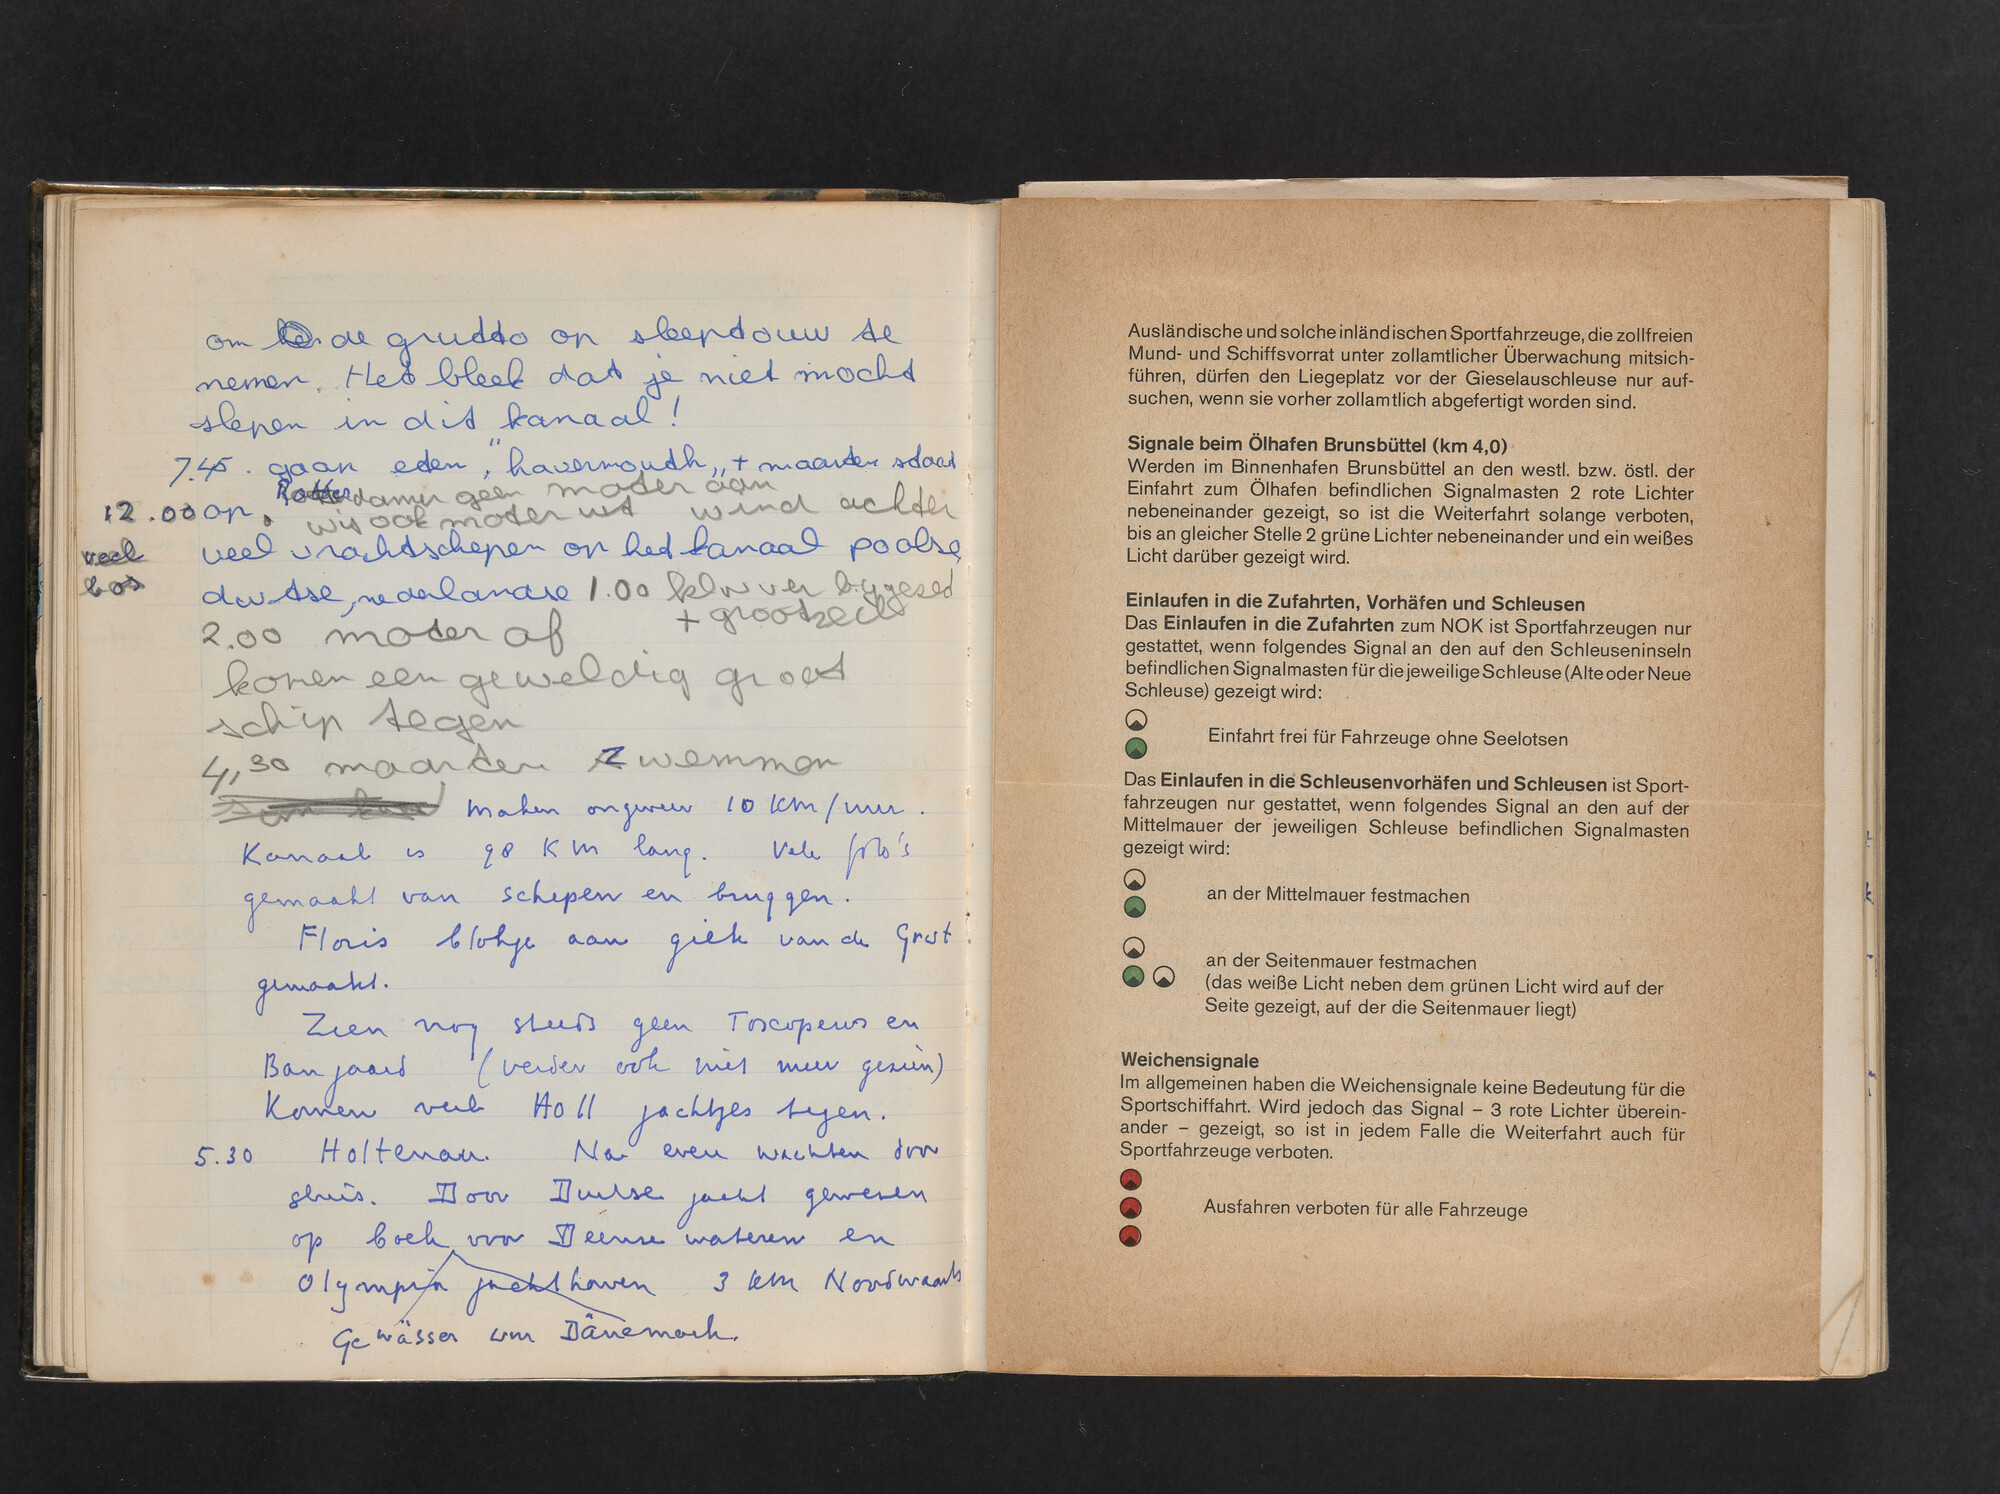 om de grutto op sleeptouw te
nemen. Het bleek dat je niet mocht
slepen in dit kanaal!
7.45. gaan eten, "havermouth" + maarten staat
Rotterdamer geen moter aan
12.00 op. wij ook moter uit wind achter
veel bos
veel vrachtschepen op het kanaal poolse,
duitse, nederlandse 1.00 kluwver bijgezed
+ grootzeil
2.00 moter af
komen een geweldig groot
schip tegen
4,30 maarten zwemmen
maken ongeveer 10 KM/uur.
Kanaal is 98 KM lang. Vele foto's
gemaakt van schepen en bruggen.
Floris blokje aan giek van de Grut
gemaakt.
Zien nog steeds geen Toscopeus en
Banjaard (verder ook niet meer gezien)
Komen veel Holl jachtjes tegen.
5.30 Holtenau. Na even wachten door
sluis. Door Duitse jacht gewezen
op boek voor Deense wateren en
Olympia jachthaven 3 km Noordwaarts
Gewässer von Dänemark.
Ausländische und solche inländischen Sportfahrzeuge, die zollfreien
Mund- und Schiffsvorrat unter zollamtlicher Überwachung mitsich-
führen, dürfen den Liegeplatz vor der Gieselauschleuse nur auf-
suchen, wenn sie vorher zollamtlich abgefertigt worden sind.
Signale beim Ölhafen Brunsbüttel (km 4,0)
Werden im Binnenhafen Brunsbüttel an den westl. bzw. östl. der
Einfahrt zum Ölhafen befindlichen Signalmasten 2 rote Lichter
nebeneinander gezeigt, so ist die Weiterfahrt solange verboten,
bis an gleicher Stelle 2 grüne Lichter nebeneinander und ein weißes
Licht darüber gezeigt wird.
Einlaufen in die Zufahrten, Vorhäfen und Schleusen
Das Einlaufen in die Zufahrten zum NOK ist Sportfahrzeugen nur
gestattet, wenn folgendes Signal an den auf den Schleuseninseln
befindlichen Signalmasten für die jeweilige Schleuse (Alte oder Neue
Schleuse) gezeigt wird:
Einfahrt frei für Fahrzeuge ohne Seelotsen
Das Einlaufen in die Schleusenvorhäfen und Schleusen ist Sport-
fahrzeugen nur gestattet, wenn folgendes Signal an den auf der
Mittelmauer der jeweiligen Schleuse befindlichen Signalmasten
gezeigt wird:
an der Mittelmauer festmachen
an der Seitenmauer festmachen
(das weiße Licht neben dem grünen Licht wird auf der
Seite gezeigt, auf der die Seitenmauer liegt)
Weichensignale
Im allgemeinen haben die Weichensignale keine Bedeutung für die
Sportschiffahrt. Wird jedoch das Signal – 3 rote Lichter überein-
ander – gezeigt, so ist in jedem Falle die Weiterfahrt auch für
Sportfahrzeuge verboten.
Ausfahren verboten für alle Fahrzeuge